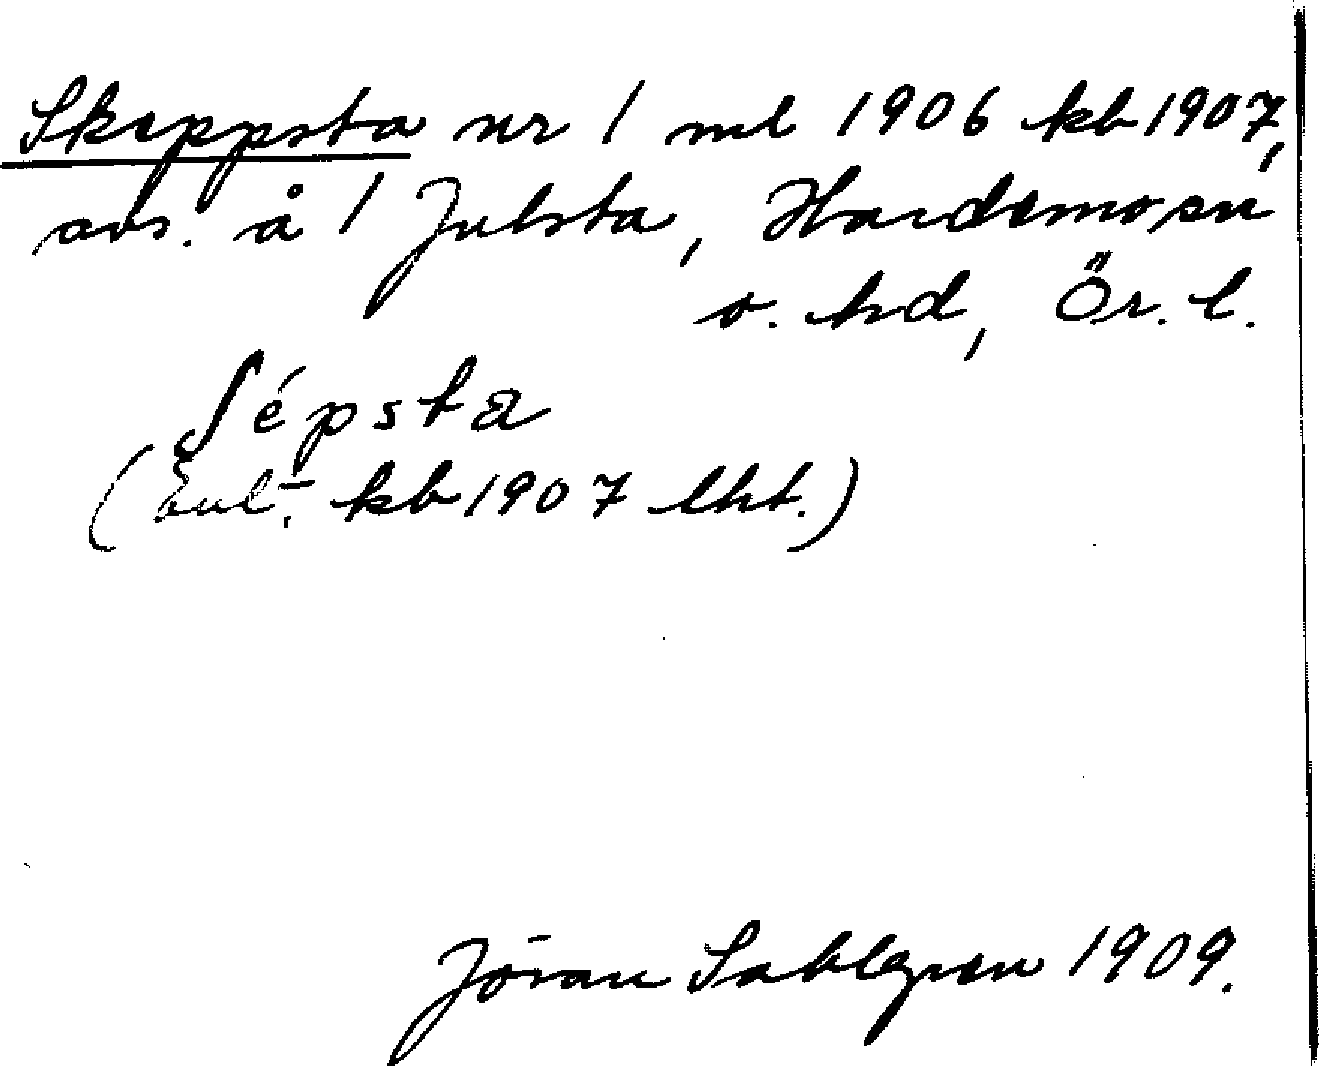 Skeppsta nr 1 ml 1906 kb 1907,
avs. å 1 Julsta, Hardemo sn
o. hd, Ör. l.
ʃépsta
(Enl. kb 1907 lht.)
Jöran Sahlgren 1909.